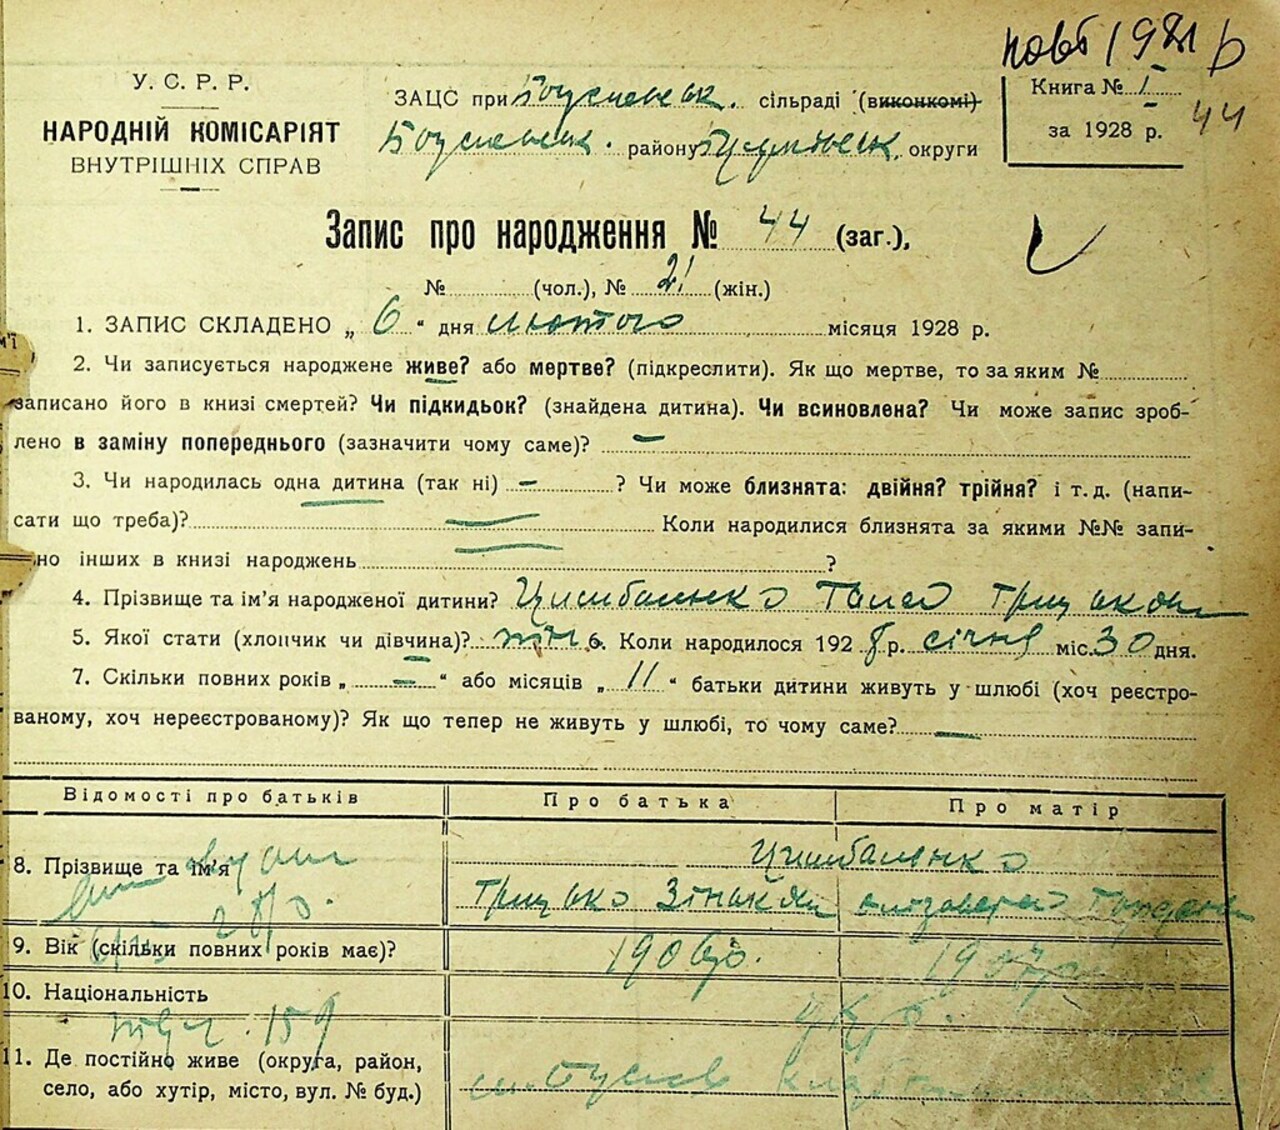 повт 1981 р
У. С. Р. Р.
НАРОДНІЙ КОМІСАРІЯТ
ВНУТРІШНІХ СПРАВ
ЗАЦС при Богуславськ. сільраді (виконкомі)
Богуславськ. району округи
Книга № I
за 1928 р.
44
Запис про народження № 44 (заг.),
№ (чол.), № 21 (жін.)
1. ЗАПИС СКЛАДЕНО „ 6 “ дня лютого місяця 1928 р.
2. Чи записується народжене живе? або мертве? (підкреслити). Як що мертве, то за яким №
записано його в книзі смертей? Чи підкидьок? (знайдена дитина). Чи всиновлена? Чи може запис зроб-
лено в заміну попереднього (зазначити чому саме)? —
3. Чи народилась одна дитина (так ні) — ? Чи може близнята: двійня? трійня? і т. д. (напи-
сати що треба)? Коли народилися близнята за якими №№ запи-
но інших в книзі народжень ?
4. Прізвище та ім’я народженої дитини? Цимбаленко
5. Якої стати (хлопчик чи дівчина)? жін 6. Коли народилося 1928 р. січня міс. 30 дня.
7. Скільки повних років „ — “ або місяців „ 11 “ батьки дитини живуть у шлюбі (хоч реєстро-
ваному, хоч нереєстрованому)? Як що тепер не живуть у шлюбі, то чому саме? —
Відомості про батьків
Про батька
Про матір
8. Прізвище та ім’я
Цимбаленко
Грицько Елизавета
9. Вік (скільки повних років має)?
1906 р.
10. Національність
укр.
159
11. Де постійно живе (округа, район,
село, або хутір, місто, вул. № буд.)